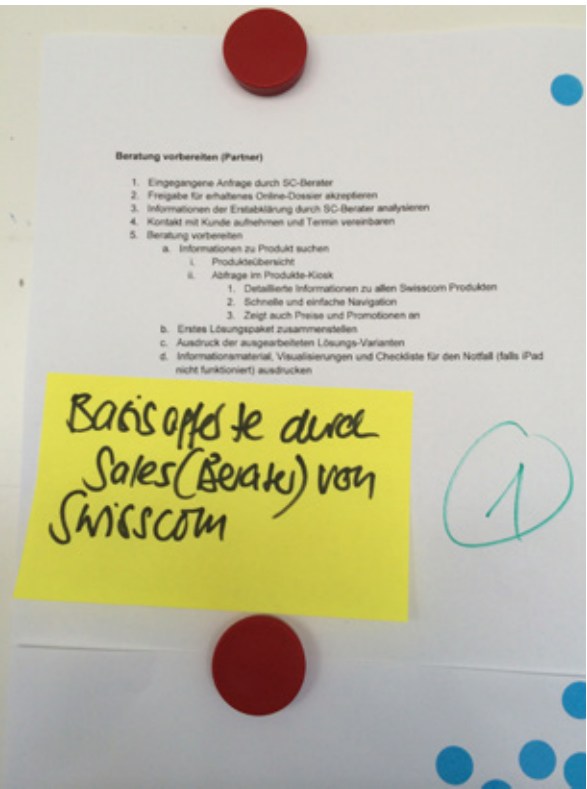 Beratung vorbereiten (Partner)
1. Eingegangene Anfrage durch SC-Berater
2. Freigabe für erhaltenes Online-Dossier akzeptieren
3. Informationen der Erstabklärung durch SC-Berater analysieren
4. Kontakt mit Kunde aufnehmen und Termin vereinbaren
5. Beratung vorbereiten
a. Informationen zu Produkt suchen
i. Produkteübersicht
ii. Abfrage im Produkte-Kiosk
1. Detaillierte Informationen zu allen Swisscom Produkten
2. Schnelle und einfache Navigation
3. Zeigt auch Preise und Promotionen an
b. Erstes Lösungspaket zusammenstellen
c. Ausdruck der ausgearbeiteten Lösungs-Varianten
d. Informationsmaterial, Visualisierungen und Checkliste für den Notfall (falls iPad
nicht funktioniert) ausdrucken
Basisofferte durch
Sales (Berater) von
Swisscom
1